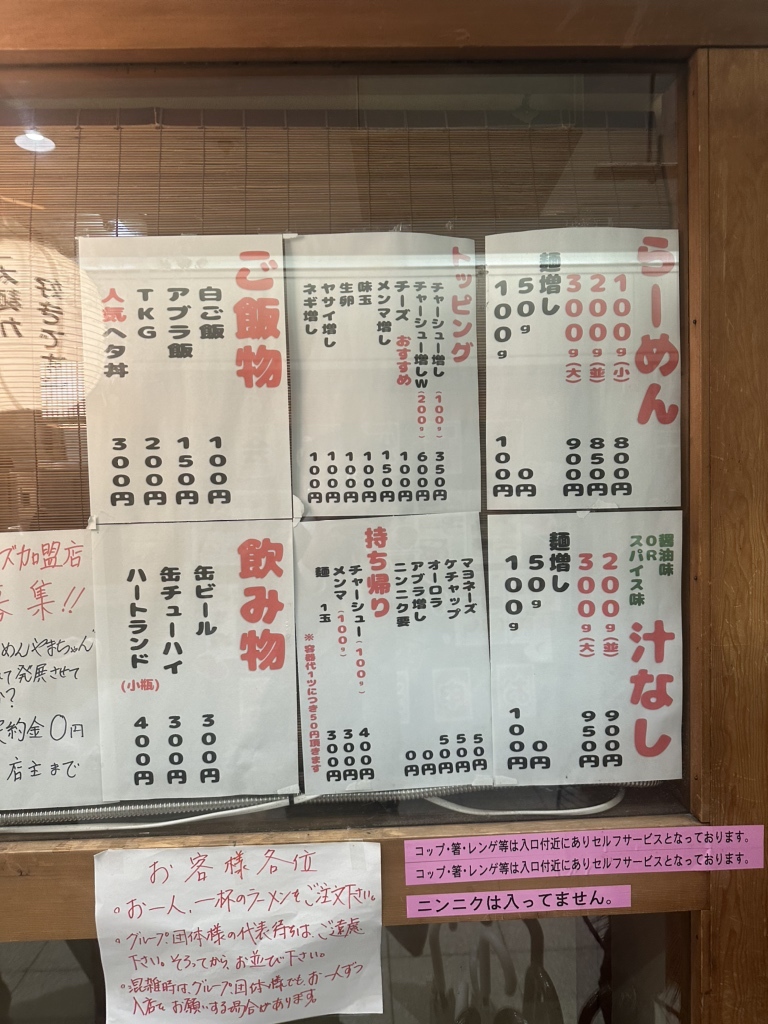 らーめん
100g(小) 800円
200g(並) 850円
300g(大) 900円
麺増し
50g 0円
100g 100円
トッピング
チャーシュー増し(100g) 350円
チャーシュー増しW(200g) 600円
チーズ おすすめ 100円
メンマ増し 150円
味玉 100円
生卵 100円
ヤサイ増し 100円
ネギ増し 100円
ご飯物
白ご飯 100円
アブラ飯 150円
TKG 200円
人気ヘタ丼 300円
汁なし
醤油味
OR
スパイス味
200g(並) 900円
300g(大) 950円
麺増し
50g 0円
100g 100円
マヨネーズ 50円
ケチャップ 50円
オーロラ 50円
アブラ増し 0円
ニンニク要 0円
持ち帰り
チャーシュー(100g) 400円
メンマ(100g) 300円
麺 1玉 300円
※容器代1ツにつき50円頂きます
飲み物
缶ビール 300円
缶チューハイ 300円
ハートランド(小瓶) 400円
ズ加盟店
募集!!
めんやまちゃん
て発展させて
か?
契約金0円
店主まで
コップ・箸・レンゲ等は入口付近にありセルフサービスとなっております。
コップ・箸・レンゲ等は入口付近にありセルフサービスとなっております。
ニンニクは入ってません。
お客様各位
・お一人、一杯のラーメンをご注文下さい。
・グループ団体様の代表待ちは、ご遠慮
下さい。そろってから、お並び下さい。
・混雑時は、グループ団体様でも、お一人ずつ
入店を お願いする場合があります。